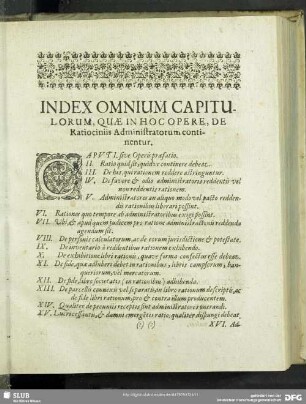 INDEX OMNIUM CAPITU-
LORUM, QUÆ IN HOC OPERE, DE
Ratiociniis Administratorum conti-
nentur.
CAPUT I. sive Operis præfatio.
II. Ratio quid sit, quidve continere debeat.
III. De his, qui rationem reddere astringuntur.
IV. De favore & odio administratoris reddentis vel
non reddentis rationem.
V. Administratores an aliquo modo vel pacto redden-
dis rationibus liberari possint.
VI. Rationes quo tempore ab administratoribus exigi possint.
VII. Ubi, & apud quem judicem pro ratione administrationis reddenda
agendum sit.
VIII. De personis calculatorum, ac de eorum jurisdictione & potestate.
IX. De inventario à reddentibus rationem exhibendo.
X. De exhibitione libri rationum, quave forma confectus esse debeat.
XI. De fide, quæ adhiberi debet in rationibus, libris campsorum, ban-
queriorum, vel mercatorum.
XII. De fide, libro societatis (an rationibus) adhibenda.
XIII. De parcellis connexis vel separatis, in libro rationum descriptis, ac
de fide libri rationum, pro & contra illum producentem.
XIV. Qualiter de pecuniis receptis sint administratores onerandi.
XV. Lucri cessantis, & damni emergentis ratio, qualiter dispungi debeat.
(?) (?) XVI. Ad-
SLUB
DFG